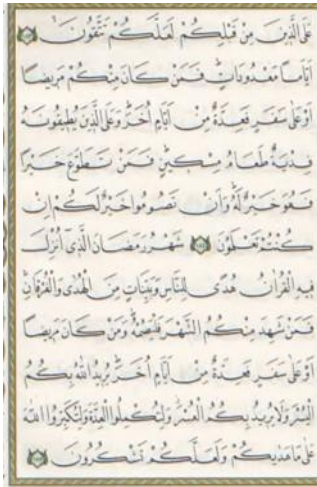 عَلَى الَّذِينَ مِنْ قَبْلِكُمْ لَعَلَّكُمْ تَتَّقُونَۙ
اَيَّاماً مَعْدُودَاتٍۜ فَمَنْ كَانَ مِنْكُمْ مَرٖيضاً
اَوْ عَلٰى سَفَرٍ فَعِدَّةٌ مِنْ اَيَّامٍ اُخَرَۜ وَعَلَى الَّذٖينَ يُطٖيقُونَهُ
فِدْيَةٌ طَعَامُ مِسْكٖينٍۜ فَمَنْ تَطَوَّعَ خَيْراً
فَهُوَ خَيْرٌ لَهُۜ وَاَنْ تَصُومُوا خَيْرٌ لَكُمْ اِنْ
كُنْتُمْ تَعْلَمُونَ شَهْرُ رَمَضَانَ الَّذٖٓي اُنْزِلَ
فٖيهِ الْقُرْاٰنُ هُدًى لِلنَّاسِ وَبَيِّنَاتٍ مِنَ الْهُدٰى وَالْفُرْقَانِۚ
فَمَنْ شَهِدَ مِنْكُمُ الشَّهْرَ فَلْيَصُمْهُۜ وَمَنْ كَانَ مَرٖيضاً
اَوْ عَلٰى سَفَرٍ فَعِدَّةٌ مِنْ اَيَّامٍ اُخَرَۜ يُرٖيدُ اللّٰهُ بِكُمُ
الْيُسْرَ وَلَا يُرٖيدُ بِكُمُ الْعُسْرَۘ وَلِتُكْمِلُوا الْعِدَّةَ وَلِتُكَبِّرُوا اللّٰهَ
عَلٰى مَا هَدٰيكُمْ وَلَعَلَّكُمْ تَشْكُرُونَ